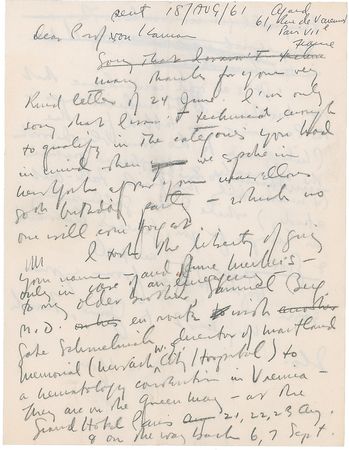 sent 18/AUG/61
61, Rue de Varenne
Paris VIIe
France
Dear Prof von Karman
Sorry that I wasn't
many thanks for your very
kind letter of 24 June. I'm only
sorry that I wasn't technical enough
to qualify in the categories you had
in mind when we spoke in
New York after your marvellous
80th birthday party – which no
one will ever forget
I took the liberty of giving
your name – and June Merker's –
only in case of an emergency
to my older brother, Samuel Berg
M.D. en route with another
Gabe Schmelnick, director of Maitland
Memorial (Newark Hospital) to
a hematology convention in Vienna –
They are on the Queen Mary – at the
Grand Hotel Paris 21, 22, 23 Aug.
& on the way back 6, 7 Sept.